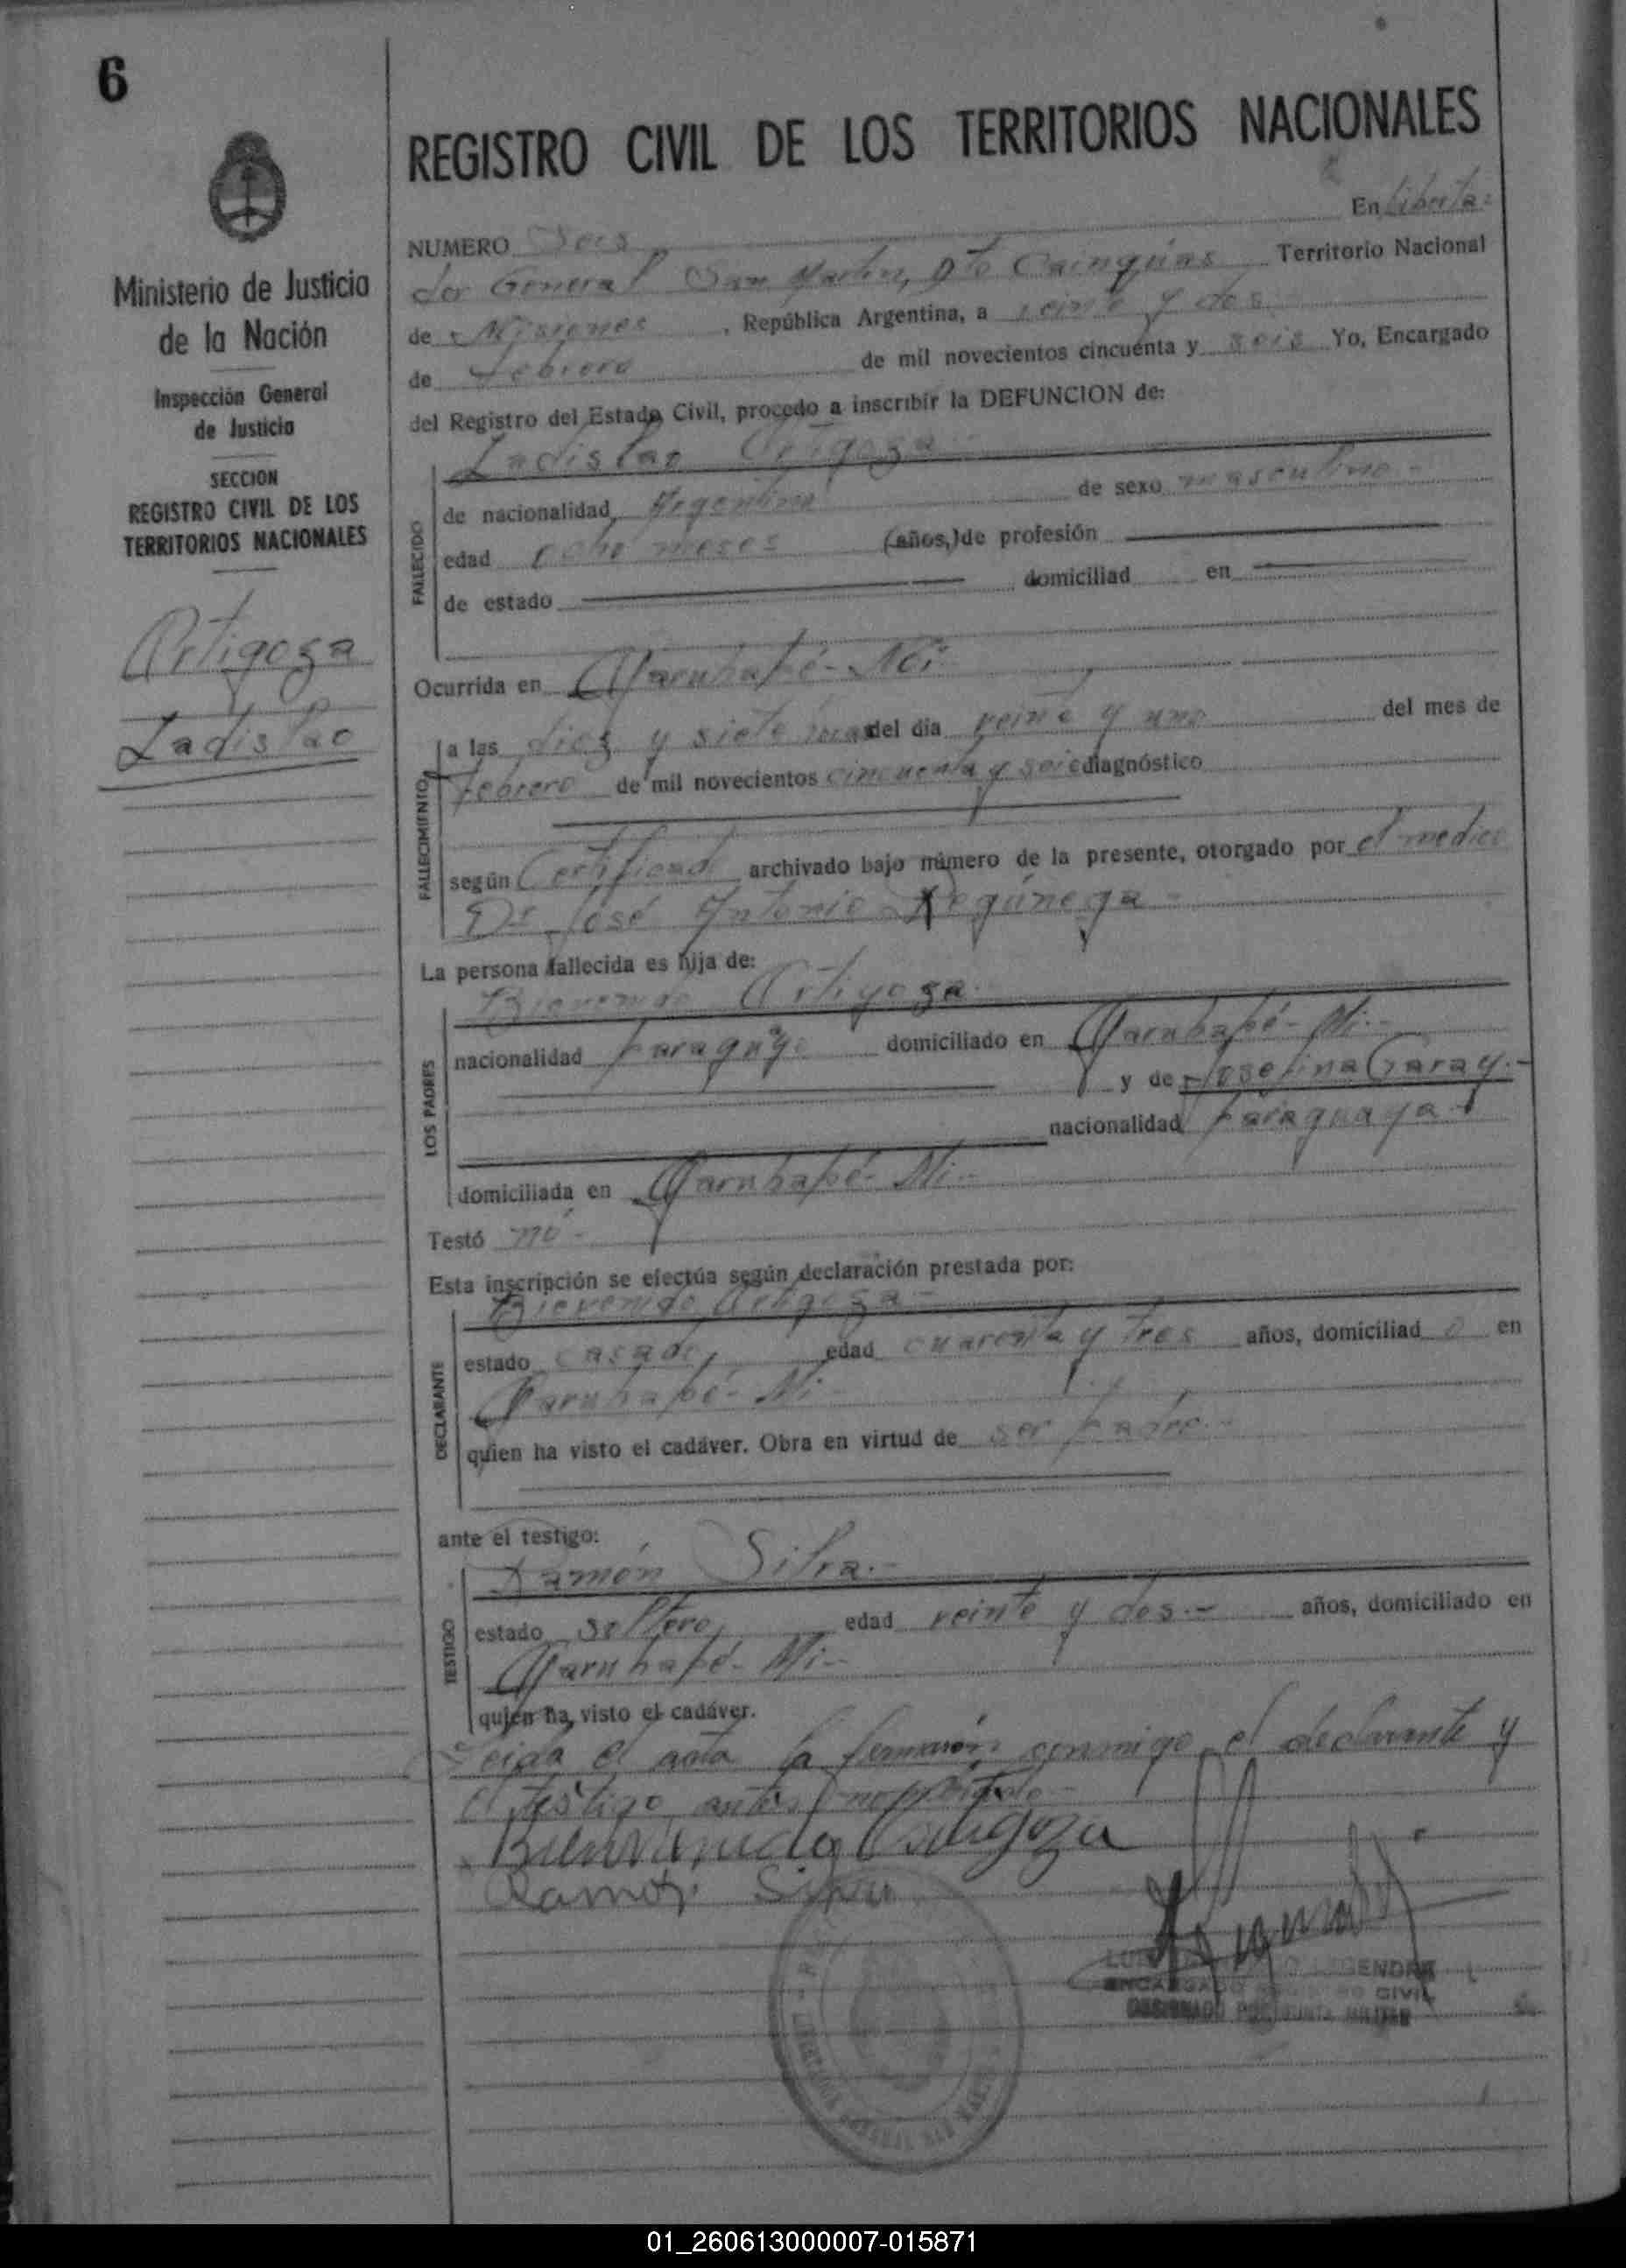 6
Ministerio de Justicia
de la Nación
Inspección General
de Justicia
SECCION
REGISTRO CIVIL DE LOS
TERRITORIOS NACIONALES
Artigoza
Ladislao
REGISTRO CIVIL DE LOS TERRITORIOS NACIONALES
NUMERO Seis En Liberta=
dor General San Martin, Dto Cainguas Territorio Nacional
de Misiones , República Argentina, a veinte y dos
de Febrero de mil novecientos cincuenta y seis Yo, Encargado
del Registro del Estado Civil, procedo a inscribir la DEFUNCION de:
FALLECIDO
Ladislao Artigoza
de nacionalidad Argentina de sexo masculino.-
edad ocho meses (años,) de profesión
de estado domiciliad en
Ocurrida en Garuhapé-Mi
FALLECIMIENTO
a las diez y siete horas del día veinte y uno del mes de
Febrero de mil novecientos cincuenta y seis diagnóstico
según Certificado archivado bajo número de la presente, otorgado por el medico
Dr José Antonio
La persona fallecida es hija de:
LOS PADRES
Bienvenido Artigoza.
nacionalidad paraguayo domiciliado en Garuhapé-Mi.-
y de Josefina Garay.-
nacionalidad paraguaya.
domiciliada en Garuhapé-Mi.-
Testó nó-
Esta inscripción se efectúa según declaración prestada por:
DECLARANTE
Bievenido Artigoza-
estado casado, edad cuarenta y tres años, domiciliad o en
Garuhapé-Mi-
quien ha visto el cadáver. Obra en virtud de ser padre.-
ante el testigo:
TESTIGO
Ramón Silva.-
estado soltero, edad veinte y dos.- años, domiciliado en
Garuhapé-Mi-
quien ha visto el cadáver.
Leida el acta la firmaron conmigo el declarante y
el testigo antes nombrado
Bienvenido Artigoza
Ramon Silva
ENCARGADO REGISTRO CIVIL
DESIGNADO POR JUNTA MILITAR
01_260613000007-015871